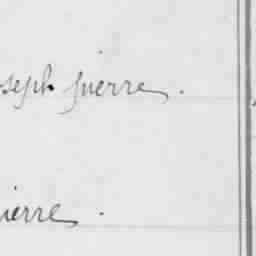 oseph pierre.
ierre.